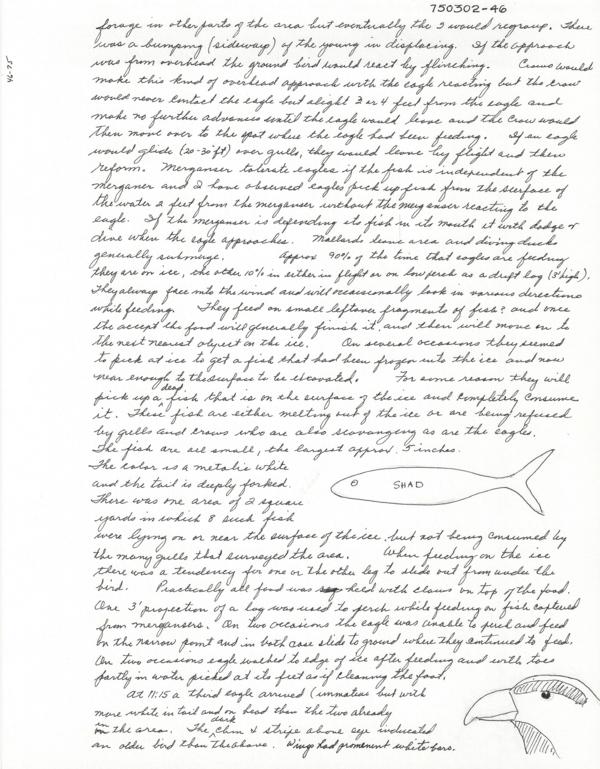 750302-46
forage in other parts of the area but eventually the 2 would regroup. There
was a bumping (sideways) of the young in displacing. If the approach
was from overhead the ground bird would react by flinching. Crows would
make this kind of overhead approach with the eagle reacting but the crow
would never contact the eagle but alight 3 or 4 feet from the eagle and
make no further advances until the eagle would leave and the Crow would
then move over to the spot where the eagle had been feeding. If an eagle
would glide (20-30 ft) over gulls, they would leave by flight and then
reform. Merganser tolerate eagles if the fish is independent of the
merganer and I have observed eagles pick up fish from the surface of
the water 2 feet from the merganser without the merganser reacting to the
eagle. If the merganser is defending its fish in its mouth it will dodge or
dive when the eagle approaches. Mallards leave area and diving ducks
generally submerge. Approx 90% of the time that eagles are feeding
they are on ice, the other 10% in either in flight or on low perch as a drift log (3' high).
They always face into the wind and will occasionally look in various directions
while feeding. They feed on small leftover fragments of fish, and once
the accept the food will generally finish it, and then will move on to
the next nearest object on the ice. On several occasions they seemed
to pick at ice to get a fish that had been frozen into the ice and now
near enough to the surface to be excavated. For some reason they will
pick up a dead fish that is on the surface of the ice and completely consume
it. These fish are either melting out of the ice or are being refused
by gulls and crows who are also scavanging as are the eagles.
The fish are all small, the largest approx. 5 inches.
The color is a metalic white
and the tail is deeply forked.
SHAD
There was one area of 2 square
yards in which 8 such fish
were lying on or near the surface of the ice, but not being consumed by
the many gulls that surveyed the area. When feeding on the ice
there was a tendency for one or the other leg to slide out from under the
bird. Practically all food was held with claws on top of the food.
One 3' projection of a log was used to perch while feeding on fish captured
from mergansers. On two occasions the eagle was unable to perch and feed
on the narrow point and in both case slide to ground where they continued to feed.
On two occasions eagle walked to edge of ice after feeding and with toes
partly in water picked at its feet as if cleaning the foot.
At 11:15 a third eagle arrived (immature but with
more white in tail and on head than the two already
in the area. The dark chin & stripe above eye indicated
an older bird than the above. Wings had prominent white bars.